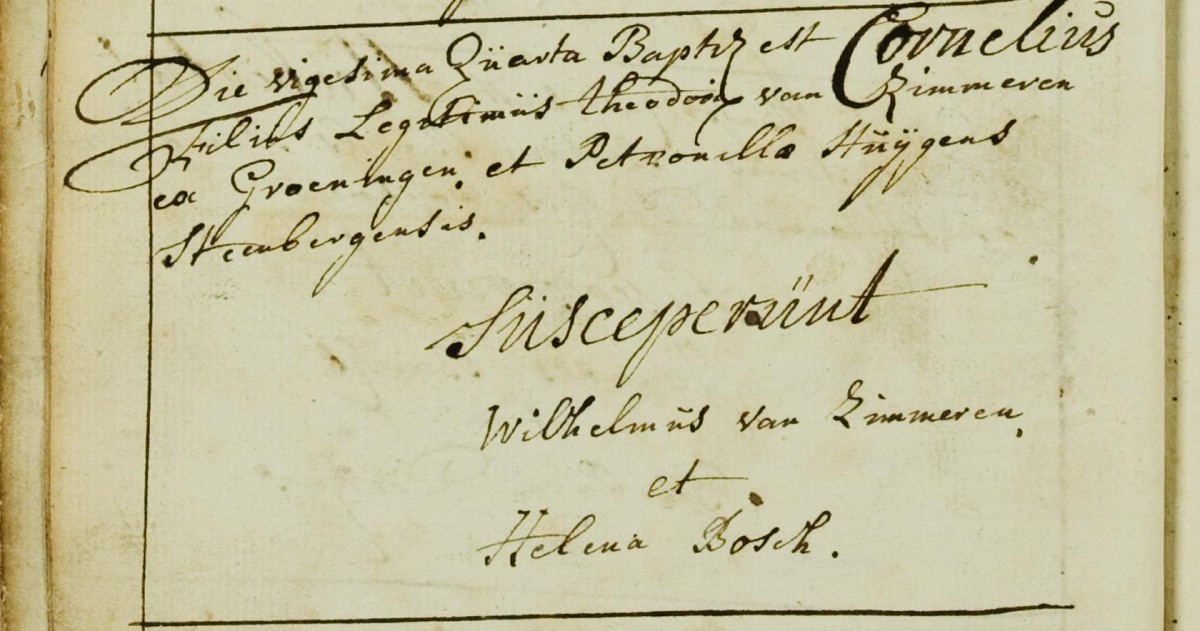 Die vigesima Qüarta Baptiz est Cornelius
Filius Legitimüs theodori van Zimmeren
ex Groeningen, et Petronillæ Hüÿgens
Steenbergensis.
Süsceperünt
Wilhelmüs van Zimmeren,
et
Helena Bosch.